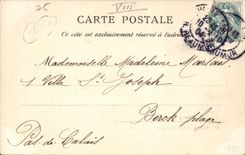 75
VIII
CARTE POSTALE
Ce côté est exclusivement réservé à l'adresse
Mademoiselle Madeleine
1 Villa St Joseph
Berck plage
Pas-de-Calais